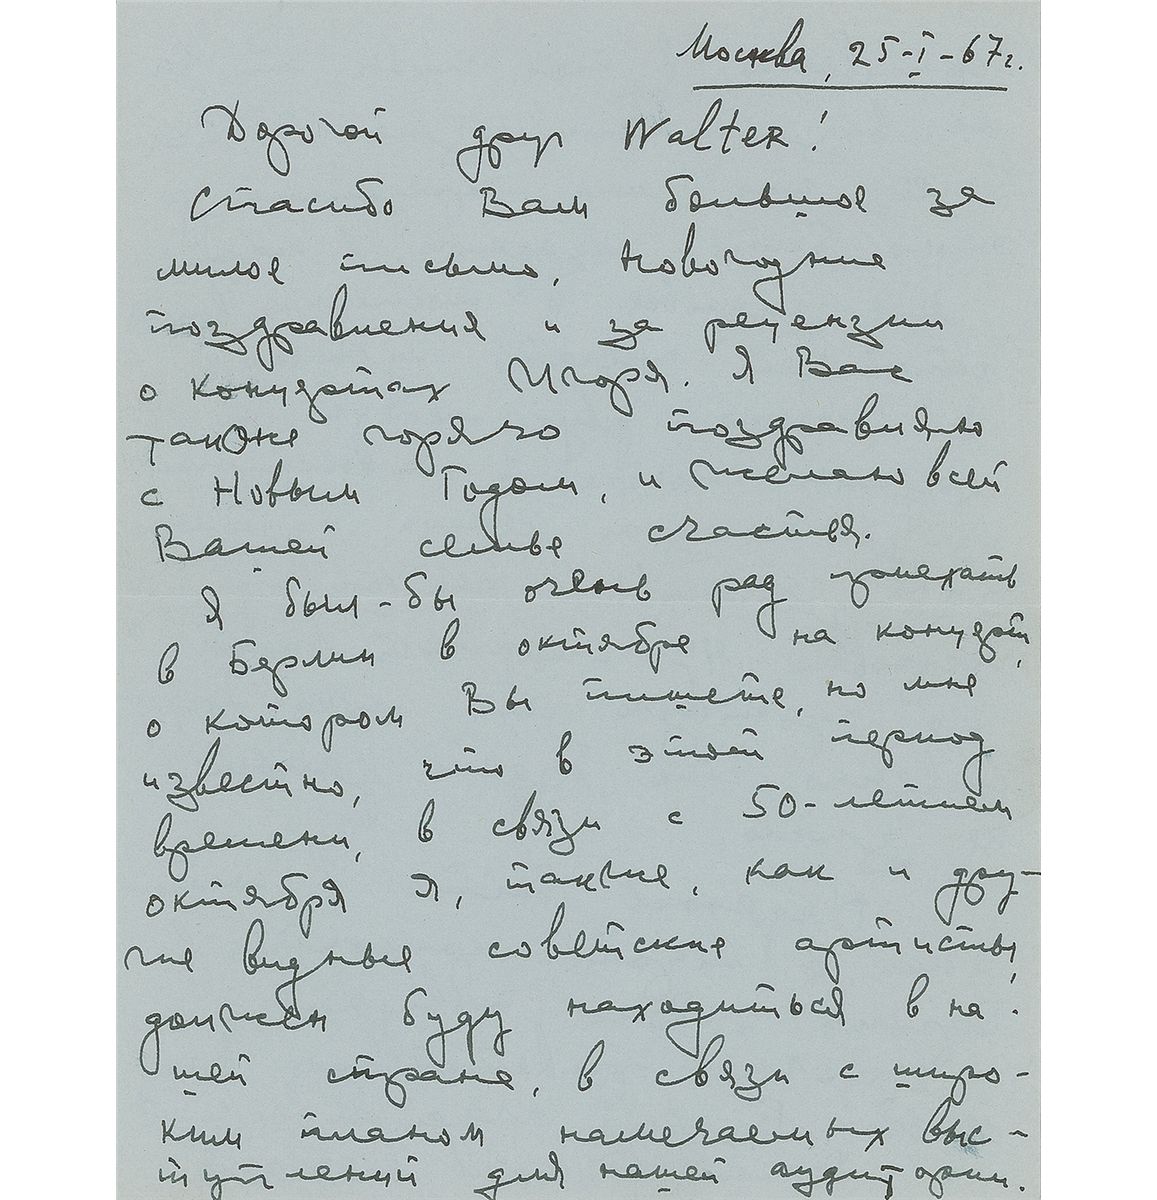 Москва, 25-I-67г.
Дорогой друг Walter!
Спасибо Вам большое за
милое письмо, новогодние
поздравления и за рецензии
о концертах Игоря. Я Вас
также горячо поздравляю
с Новым Годом, и желаю всей
Вашей семье счастья.
Я был-бы очень рад приехать
в Берлин в октябре на концерт,
о котором Вы пишете, но мне
известно, что в этот период
времени, в связи с 50-летием
октября я, также, как и дру-
гие видные советские артисты,
должен буду находиться в на-
шей стране, в связи с широ-
ким планом намечаемых выс-
туплений для нашей аудитории.